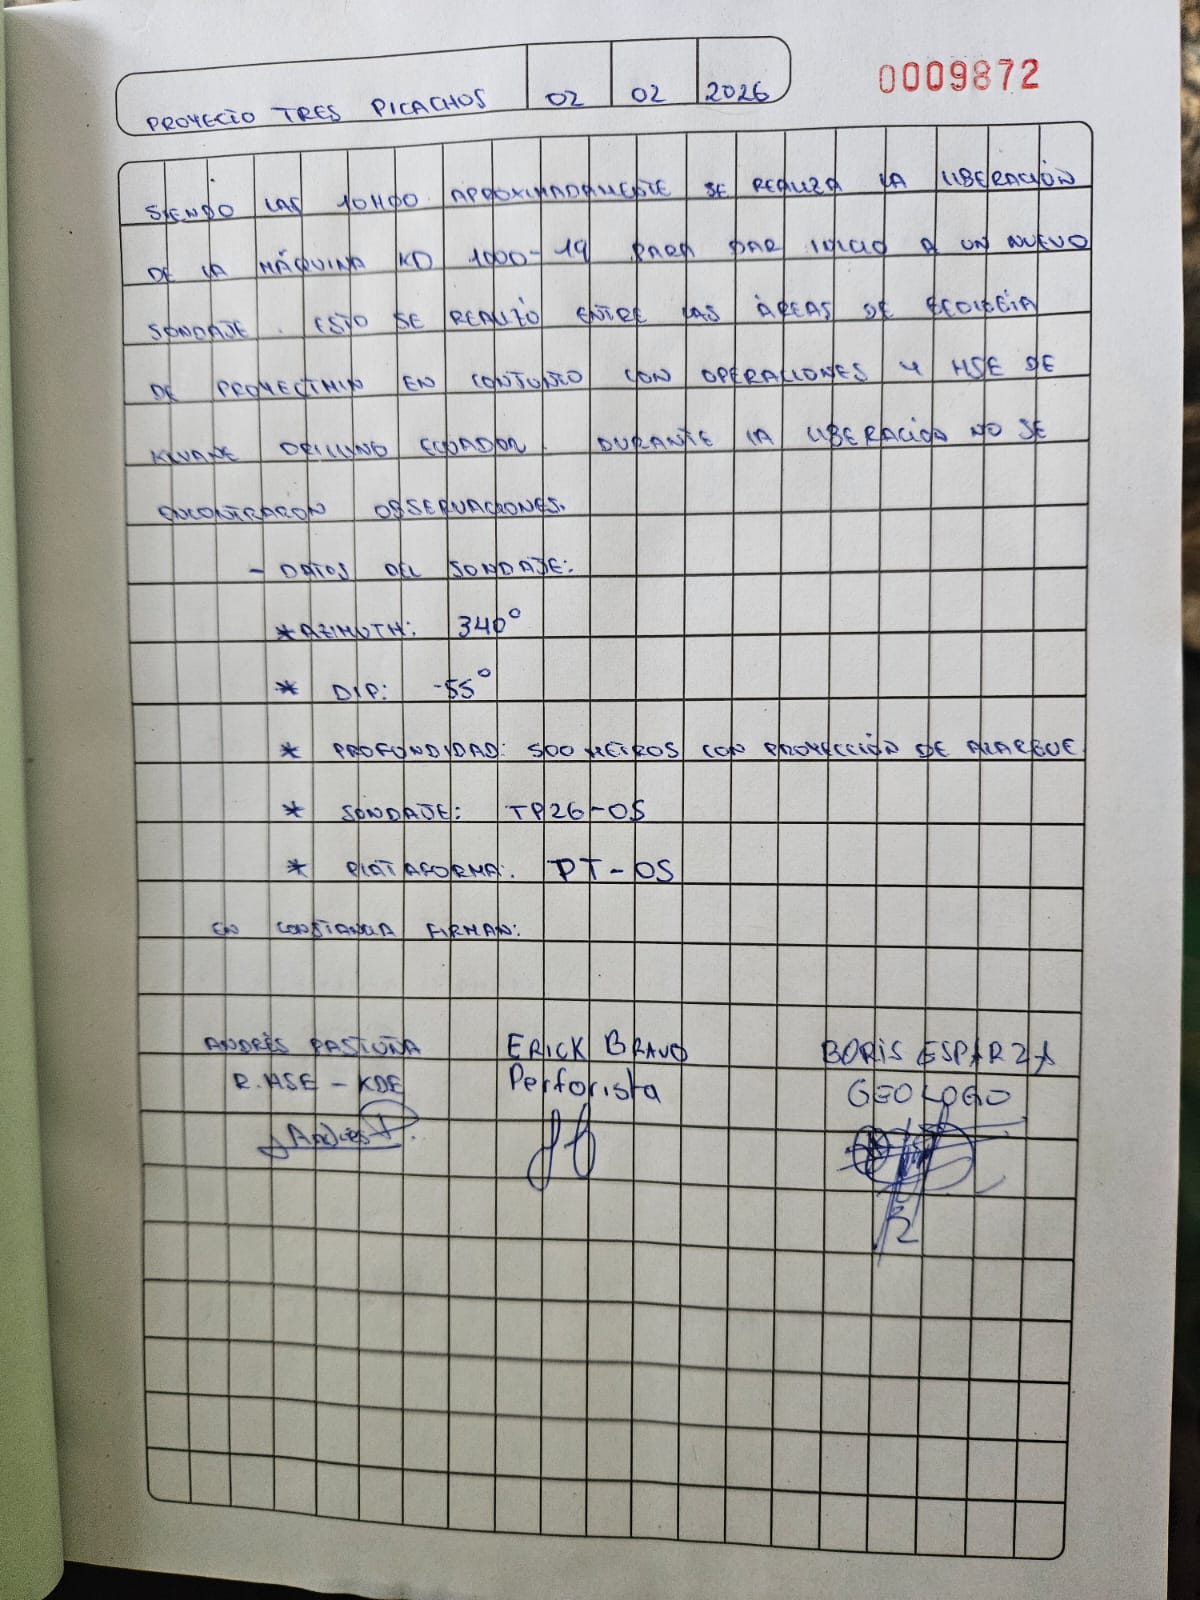 PROYECTO TRES PICACHOS 02 02 2026
0009872
SIENDO LAS 10H00 APROXIMADAMENTE SE REALIZA LA LIBERACIÓN
DE LA MÁQUINA KD 1000-19 PARA DAR INICIO A UN NUEVO
SONDAJE. ESTO SE REALIZÓ ENTRE LAS ÁREAS DE GEOLOGÍA
DE PROYECTMIN EN CONJUNTO CON OPERACIONES Y HSE DE
KLUANE DRILLING ECUADOR. DURANTE LA LIBERACIÓN NO SE
ENCONTRARON OBSERVACIONES.
- DATOS DEL SONDAJE:
* AZIMUTH: 340°
* DIP: -55°
* PROFUNDIDAD: 500 METROS CON PROYECCIÓN DE ALARGUE
* SONDAJE: TP26-05
* PLATAFORMA: PT-05
EN CONSTANCIA FIRMAN:
ANDRÉS PASTUÑA ERICK BRAVO BORIS ESPARZA
R. HSE - KDE Perforista GEOLOGO